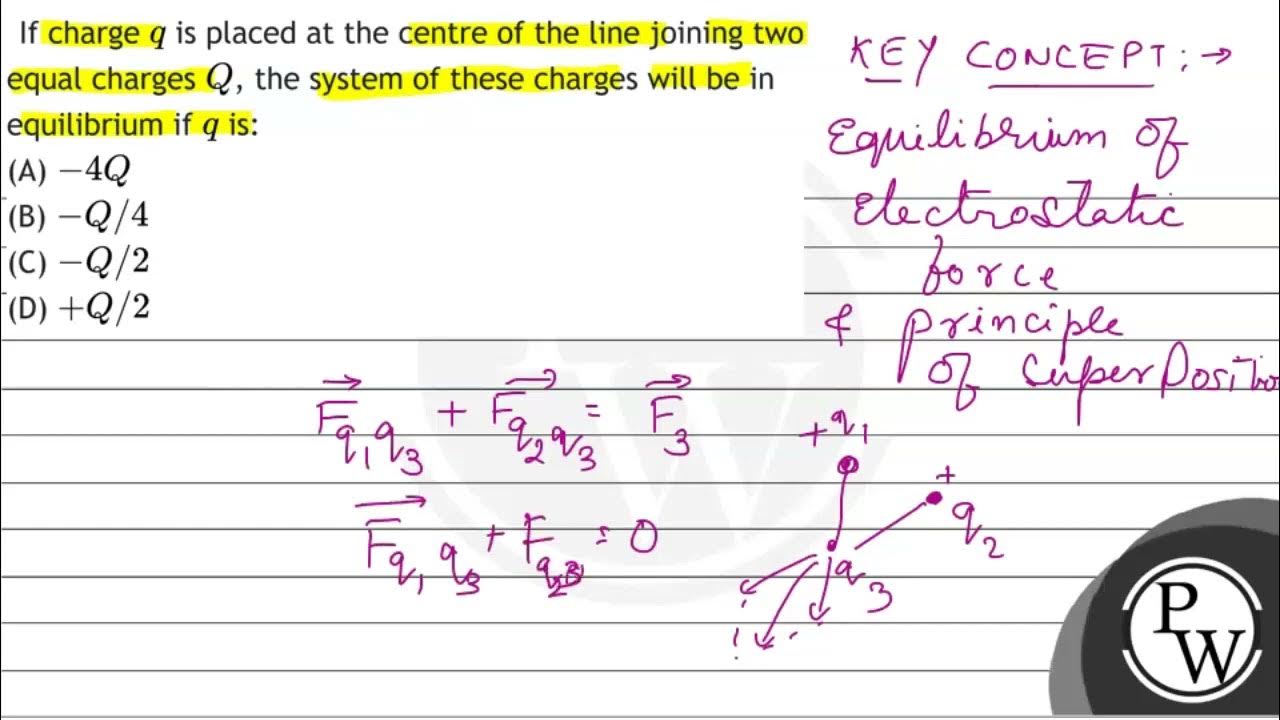 If charge q is placed at the centre of the line joining two
equal charges Q, the system of these charges will be in
equilibrium if q is:
(A) −4Q
(B) −Q/4
(C) −Q/2
(D) +Q/2
KEY CONCEPT:→
Equilibrium of
Electrostatic
force
& principle
of superPositio
F⃗q₁q₃ + F⃗q₂q₃ = F⃗₃
F⃗q₁q₃ + Fq₂₃ = 0
+q₁
+
q₂
q₃
PW